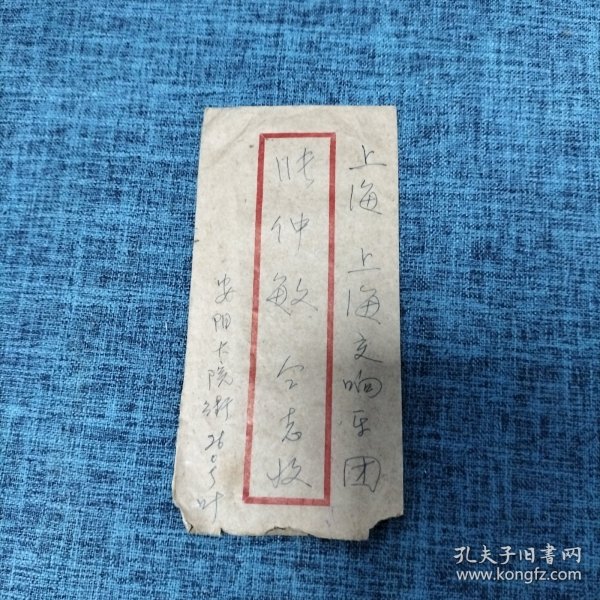 上海 上海交响乐团
张仲敏 仝志收
安阳大院街26号叶
孔夫子旧书网
www.kongfz.com